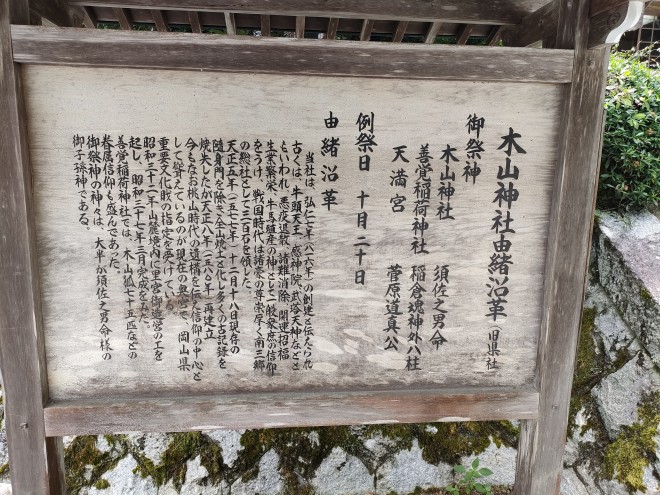 木山神社由緒沿革（旧県社）
御祭神
木山神社　須佐之男命
善覚稲荷神社　稲倉魂神外八柱
天満宮　菅原道真公
例祭日　十月二十日
由緒沿革
当社は、弘仁七年（八一六年）の創建と伝えられ
古くは、牛頭天王、感神院、武塔天神などと
いわれ、悪疫退散、諸難消除、開運招福
生業繁栄、牛馬殖産の神として一般衆庶の信仰
をうけ、戦国時代は諸豪の尊崇厚く南三郷
の総社として三百石を領した。
天正五年（一五七七年）十二月十八日現存の
随身門を除き全山焼亡と化し多くの古記録を
焼失したが天正八年（一五八〇年）再建立
今もなお桃山時代の遺構を伝え信仰の中心と
して聳えているのが現在の奥宮で、岡山県
重要文化財の指定を受けている。
昭和三十二年山麓境内に里宮御造営の工を
起し、昭和三十七年三月完成をみた。
善覚稲荷神社では、木山狐七十五匹などの
眷属信仰も盛んであった。
御祭神の神々は、大半が須佐之男命様の
御子孫神である。